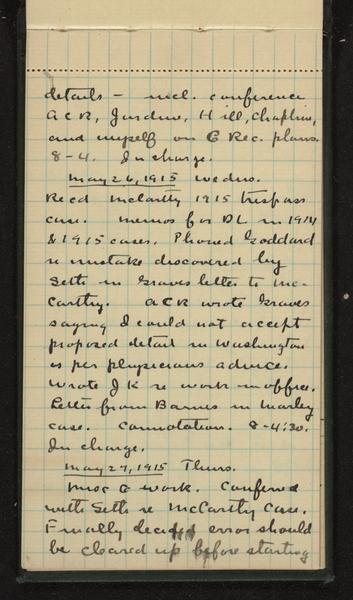 details – incl. conference
ACR, Jardine, Hill, Chapline,
and myself on G Rec. plans.
8-4. In charge.
May 26, 1915 Wednes.
Rec'd McCarthy 1915 trespass
case. Memos for DL in 1914
& 1915 cases. Phoned Goddard
re mistake discovered by
Seth in Graves letter to Mc-
Carthy. ACR wrote Graves
saying I could not accept
proposed detail in Washington
as per physicians advice.
Wrote JK re work in office.
Letter from Barnes in Marley
case. Connotation. 8-4:30.
In charge.
May 27, 1915 Thurs.
Misc G work. Conferred
with Seth re McCarthy case.
Finally decided error should
be cleared up before starting